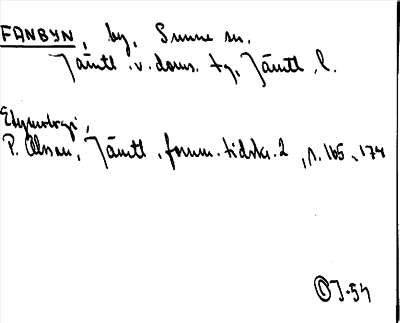 FANBYN, by, Sunne sn.
Jämtl. v. doms. tg, Jämtl. l.
Etymologi,
P. Olsson, Jämtl. fornm. tidskr. 2, s. 165, 174